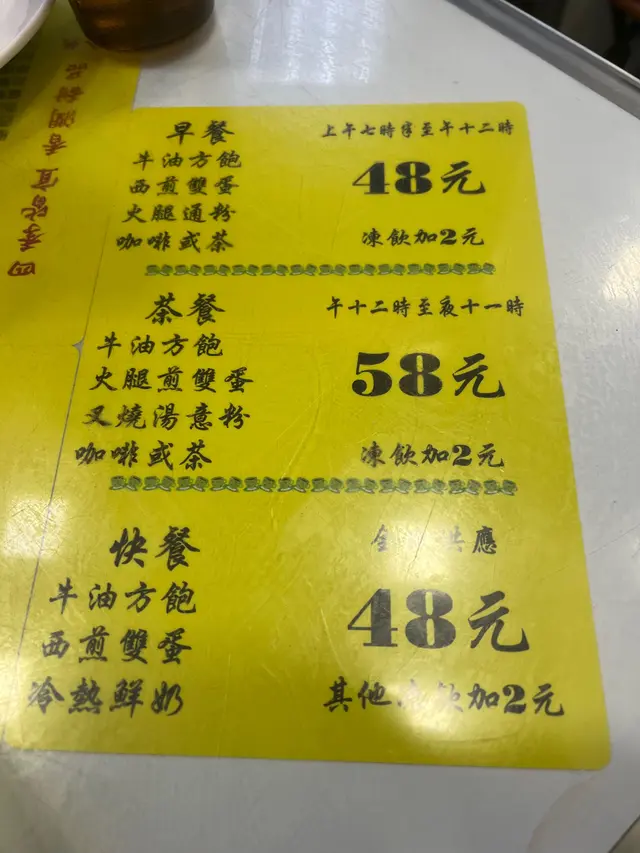 四季皆宜 香潤絲滑
早餐
上午七時半至午十二時
牛油方飽
西煎雙蛋
48元
火腿通粉
咖啡或茶
凍飲加2元
茶餐
午十二時至夜十一時
牛油方飽
火腿煎雙蛋
58元
叉燒湯意粉
咖啡或茶
凍飲加2元
快餐
全 供應
牛油方飽
48元
西煎雙蛋
冷熱鮮奶
其他 飲加2元